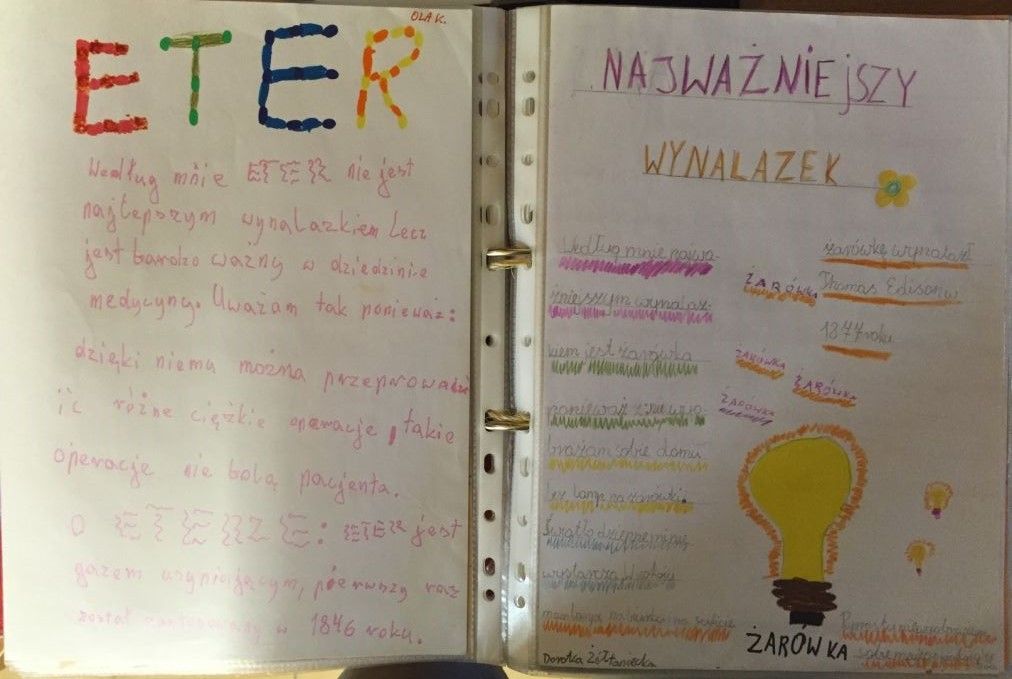 OLA K.
ETER
Według mnie ETER nie jest
najlepszym wynalazkiem lecz
jest bardzo ważny w dziedzinie
medycyny. Uważam tak ponieważ:
dzięki niemu można przeprowadz
ić różne ciężkie operacje, takie
operacje nie bolą pacjenta.
O ETERZE: ETER jest
gazem usypiającym, pierwszy raz
został zastosowany w 1846 roku.
NAJWAŻNIEjSZY
WYNALAZEK
Według mnie najwa-
żniejszym wynalaz-
kiem jest żarówka
ponieważ nie wyo-
brażam sobie domu
bez lamp na żarówki.
Światło dzienne mi nie
wystarza. W pokoju
na suficie
Dorotka
żarówkę wynalazł
Thomas Edison w
1877 roku
ŻARÓWKA
ŻARÓWKA
ŻARÓWKA
ŻARÓWKA
ŻARÓWKA